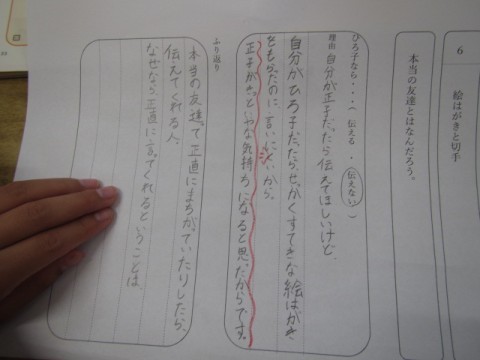 6 絵はがきと切手
本当の友達とはなんだろう。
ひろ子なら・・・（ 伝える ・ 伝えない ）
理由 自分が正子だったら伝えてほしいけど、
自分がひろ子だったら、せっかくすてきな絵はがき
をもらったのに、言いにくいから。
正子がきっといやな気持ちになると思ったからです。
ふり返り
本当の友達って正直にまちがっていたりしたら、
伝えてくれる人。
なぜなら、正直に言ってくれるということは、